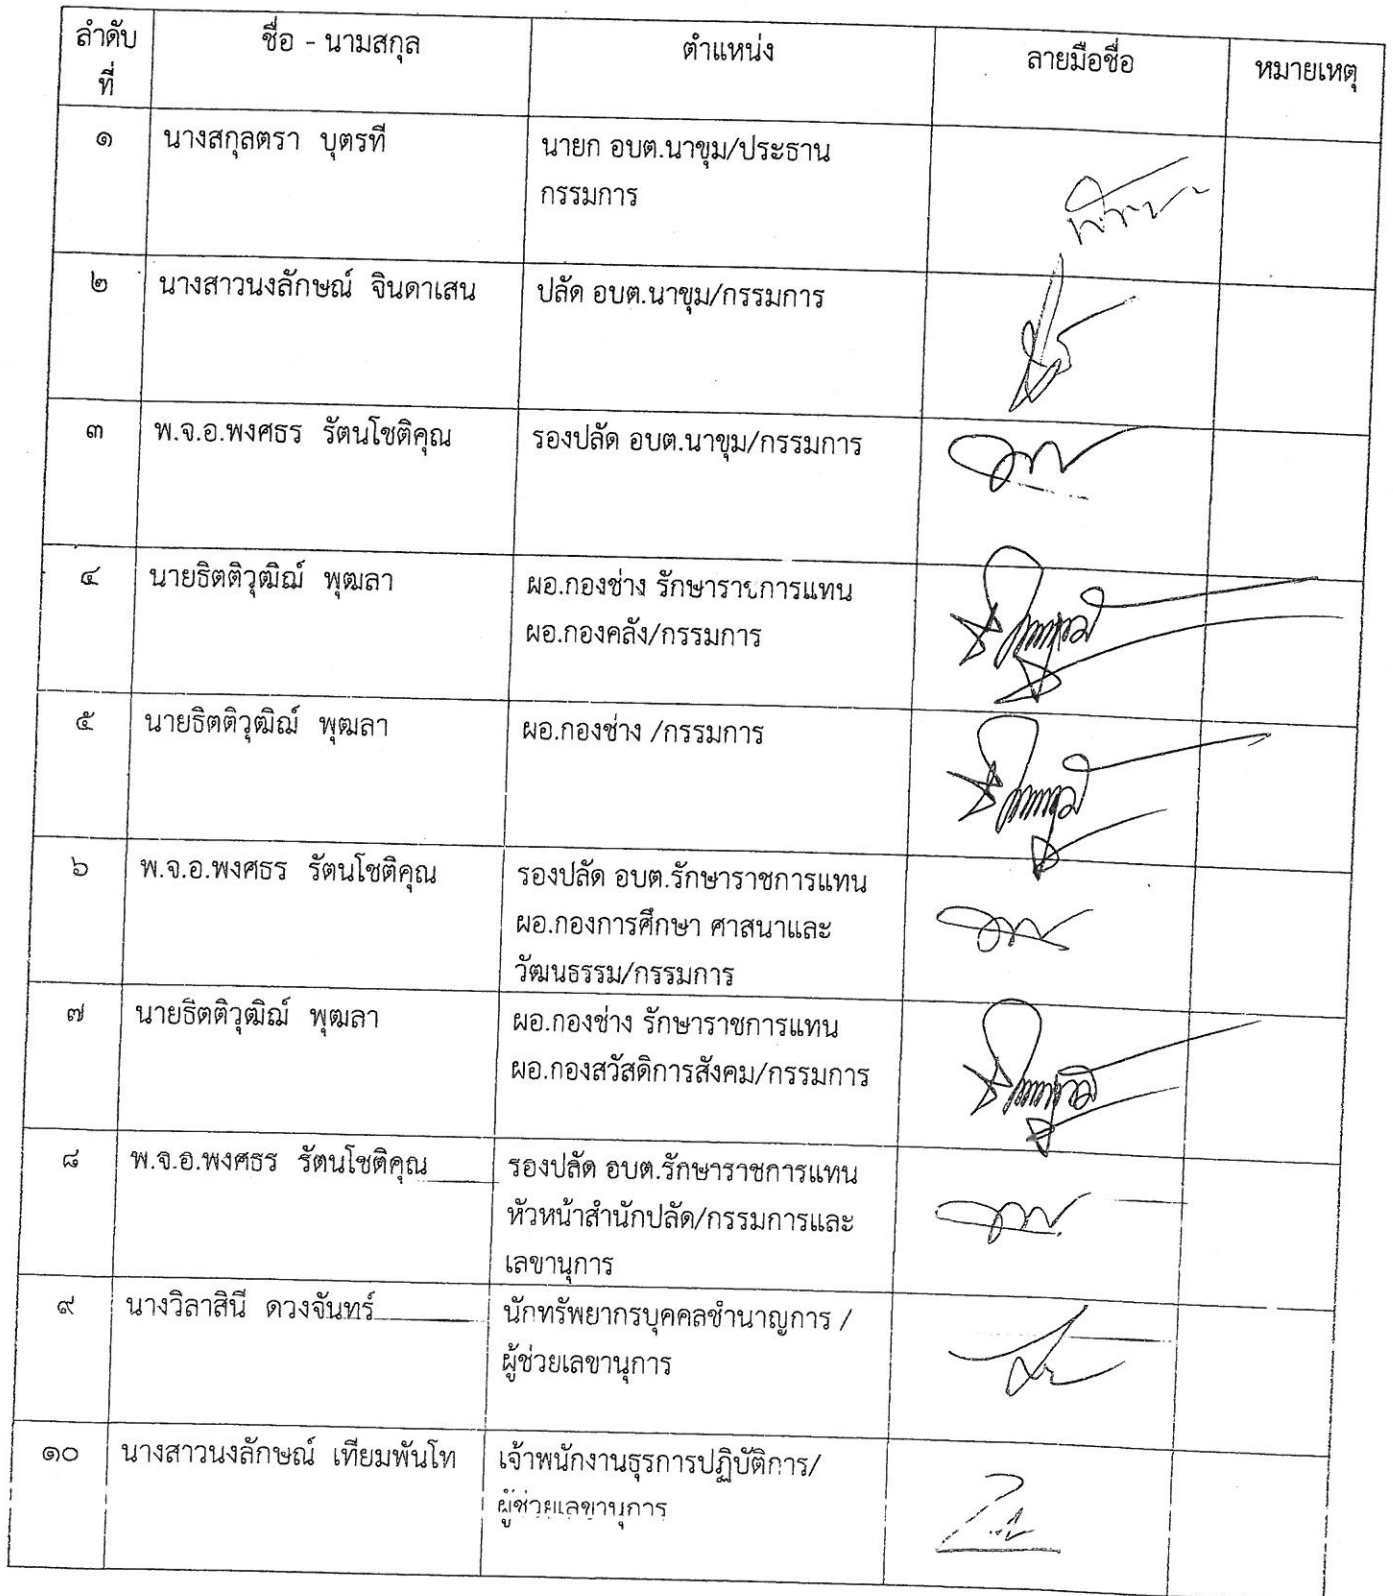 ลำดับ ชื่อ - นามสกุล ตำแหน่ง ลายมือชื่อ หมายเหตุ
ที่
๑ นางสกุลตรา บุตรที นายก อบต.นาขุม/ประธาน
กรรมการ
๒ นางสาวนงลักษณ์ จินดาเสน ปลัด อบต.นาขุม/กรรมการ
๓ พ.จ.อ.พงศธร รัตนโชติคุณ รองปลัด อบต.นาขุม/กรรมการ
๔ นายธิตติวุฒิฌ์ พุฒลา ผอ.กองช่าง รักษาราชการแทน
ผอ.กองคลัง/กรรมการ
๕ นายธิตติวุฒิฌ์ พุฒลา ผอ.กองช่าง /กรรมการ
๖ พ.จ.อ.พงศธร รัตนโชติคุณ รองปลัด อบต.รักษาราชการแทน
ผอ.กองการศึกษา ศาสนาและ
วัฒนธรรม/กรรมการ
๗ นายธิตติวุฒิฌ์ พุฒลา ผอ.กองช่าง รักษาราชการแทน
ผอ.กองสวัสดิการสังคม/กรรมการ
๘ พ.จ.อ.พงศธร รัตนโชติคุณ รองปลัด อบต.รักษาราชการแทน
หัวหน้าสำนักปลัด/กรรมการและ
เลขานุการ
๙ นางวิลาสินี ดวงจันทร์ นักทรัพยากรบุคคลชำนาญการ /
ผู้ช่วยเลขานุการ
๑๐ นางสาวนงลักษณ์ เทียมพันโท เจ้าพนักงานธุรการปฏิบัติการ/
ผู้ช่วยเลขานุการ